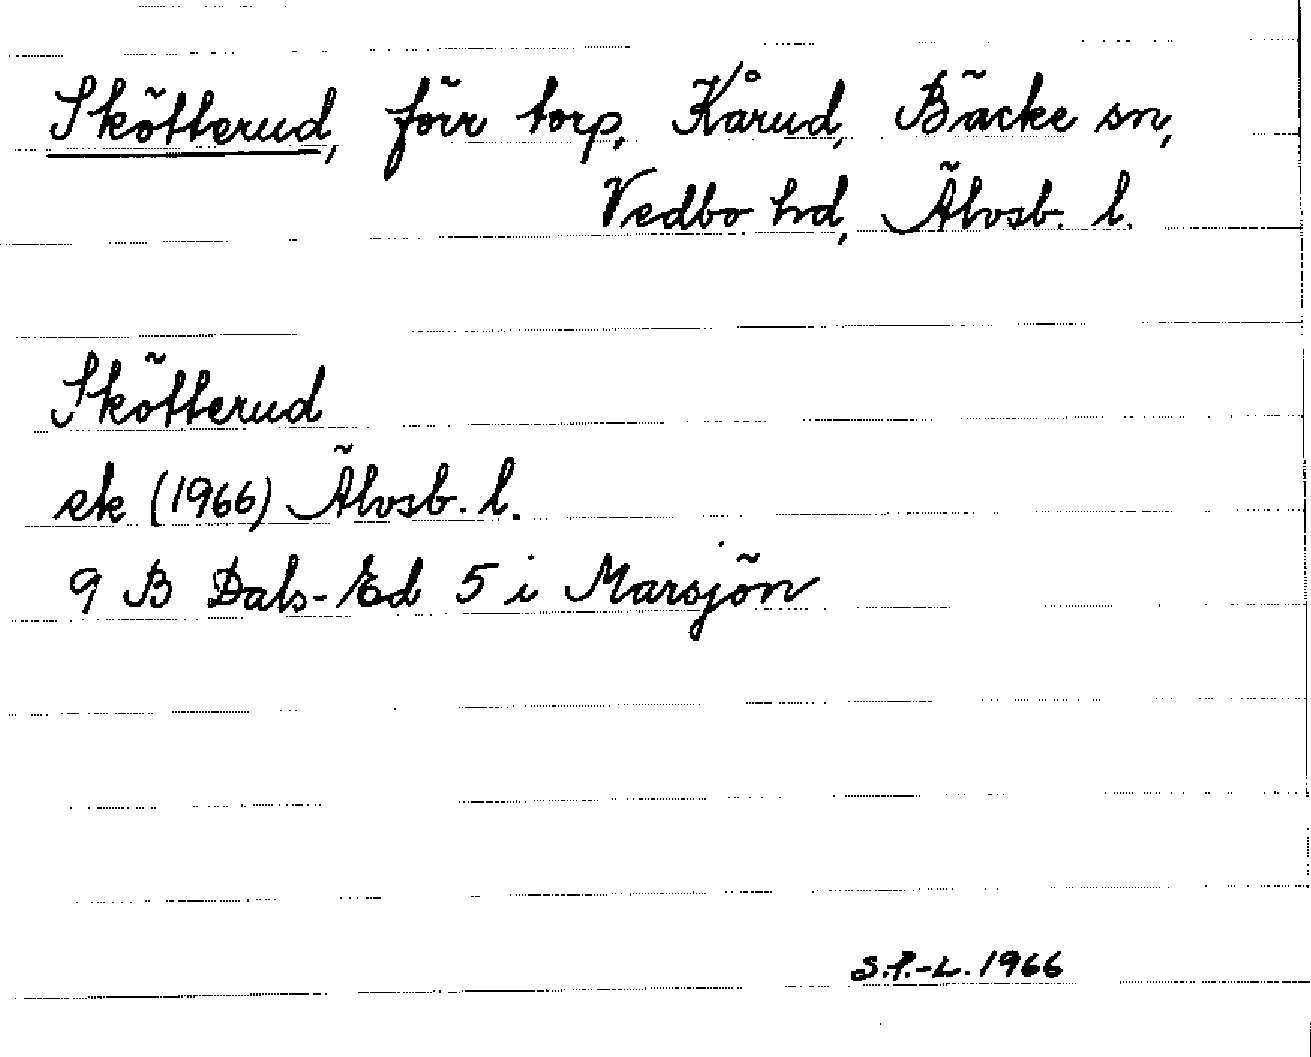 Skötterud, förr torp, Kårud, Bäcke sn,
Vedbo hd, Älvsb. l.
Skötterud
ek (1966) Älvsb. l.
9 B Dals-Ed 5 i Marsjön
S.P.-L. 1966